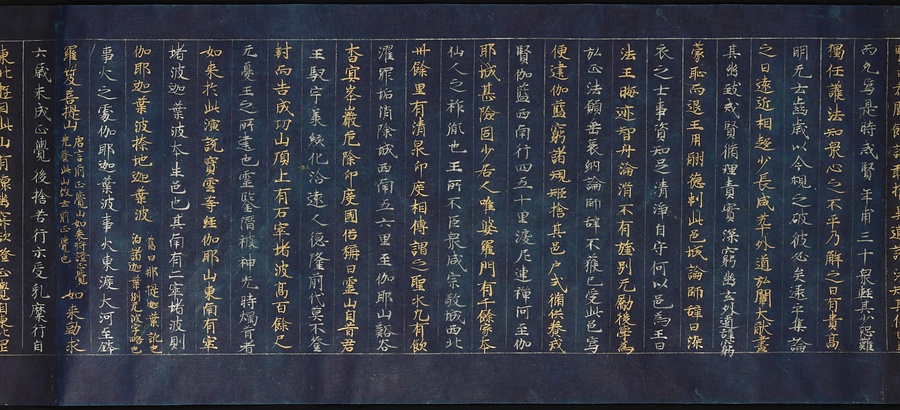 而先鳴是時戒賢年甫三十衆輕其少恐難
獨任護法知衆心之不平乃解之曰有貴高
明无云齒歲以今觀之破彼必矣逮乎集論
之日遠近相趨少長咸萃外道弘闡大猷盡
其幽致戒賢循理責實深窮幽玄外道辭窮
蒙恥而退王用酬德封此邑城論師辭曰染
衣之士事資知足清淨自守何以邑為王曰
法王晦迹智舟淪湑不有旌別无勵後學為
弘正法願垂哀納論師辭不獲已受此邑焉
便建伽藍窮諸規矩捨其邑戶式修供養戒
賢伽藍西南行四五十里渡尼連禪河至伽
耶城甚險固少居人唯婆羅門有千餘家大
仙人之祚胤也王所不臣衆咸宗敬城西北
卅餘里有清泉印度相傳謂之聖水凡有飲
濯罪垢消除城西南五六里至伽耶山谿谷
杳冥峯巖危險印度國俗稱曰靈山自昔君
王馭宇承統化洽遠人德隆前代莫不登
封而告成功山頂上有石窣堵波高百餘尺
无憂王之所建也靈鑒潛被神光時燭昔者
如來於此演說寶雲等經伽耶山東南有窣
堵波迦葉波本生邑也其南有二窣堵波則
伽耶迦葉波捺地迦葉波舊曰那提迦葉訛也洎諸迦葉例无波字略也
事火之處伽耶迦葉波事火東渡大河至鉢
羅笈菩提山唐言前正覺山如來將證正覺先登此山故云前正覺也如來勤求
六歲未成正覺後捨苦行示受乳糜行自
東北遊目此山有懷幽寂欲證正覺自東北崗